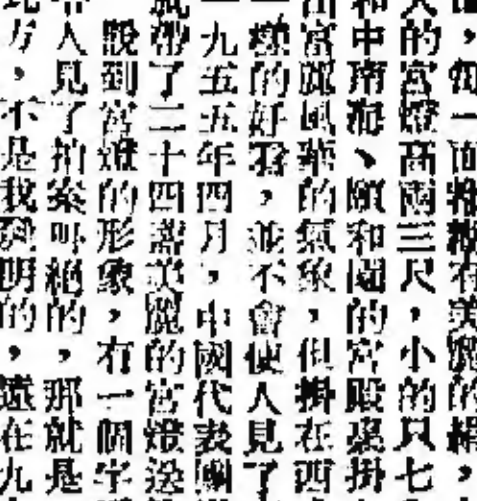 一面糊有美麗的絹,
的宮燈高兩三尺,小的只七
和中南海、頤和園的宮殿裏掛
富麗風華的氣象,但掛在西
樣的好看,並不會使人見了
一九五五年四月,中國代表團
就帶了二十四盞美麗的宮燈送
說到宮燈的形象,有一個字
人見了拍案叫絕的,那就是
方,不是我明的,遠在九